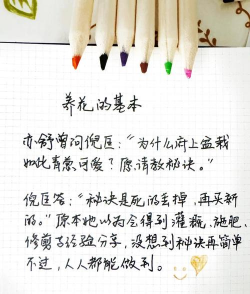 养花的基本
亦舒曾问倪匡：“为什么府上盆栽
如此青葱可爱？愿请教秘诀。”
倪匡答：“秘诀是死的丢掉，再买新
的。”原本她以为会得到灌溉、施肥、
修剪等经验分享，没想到秘诀再简单
不过，人人都能做到。